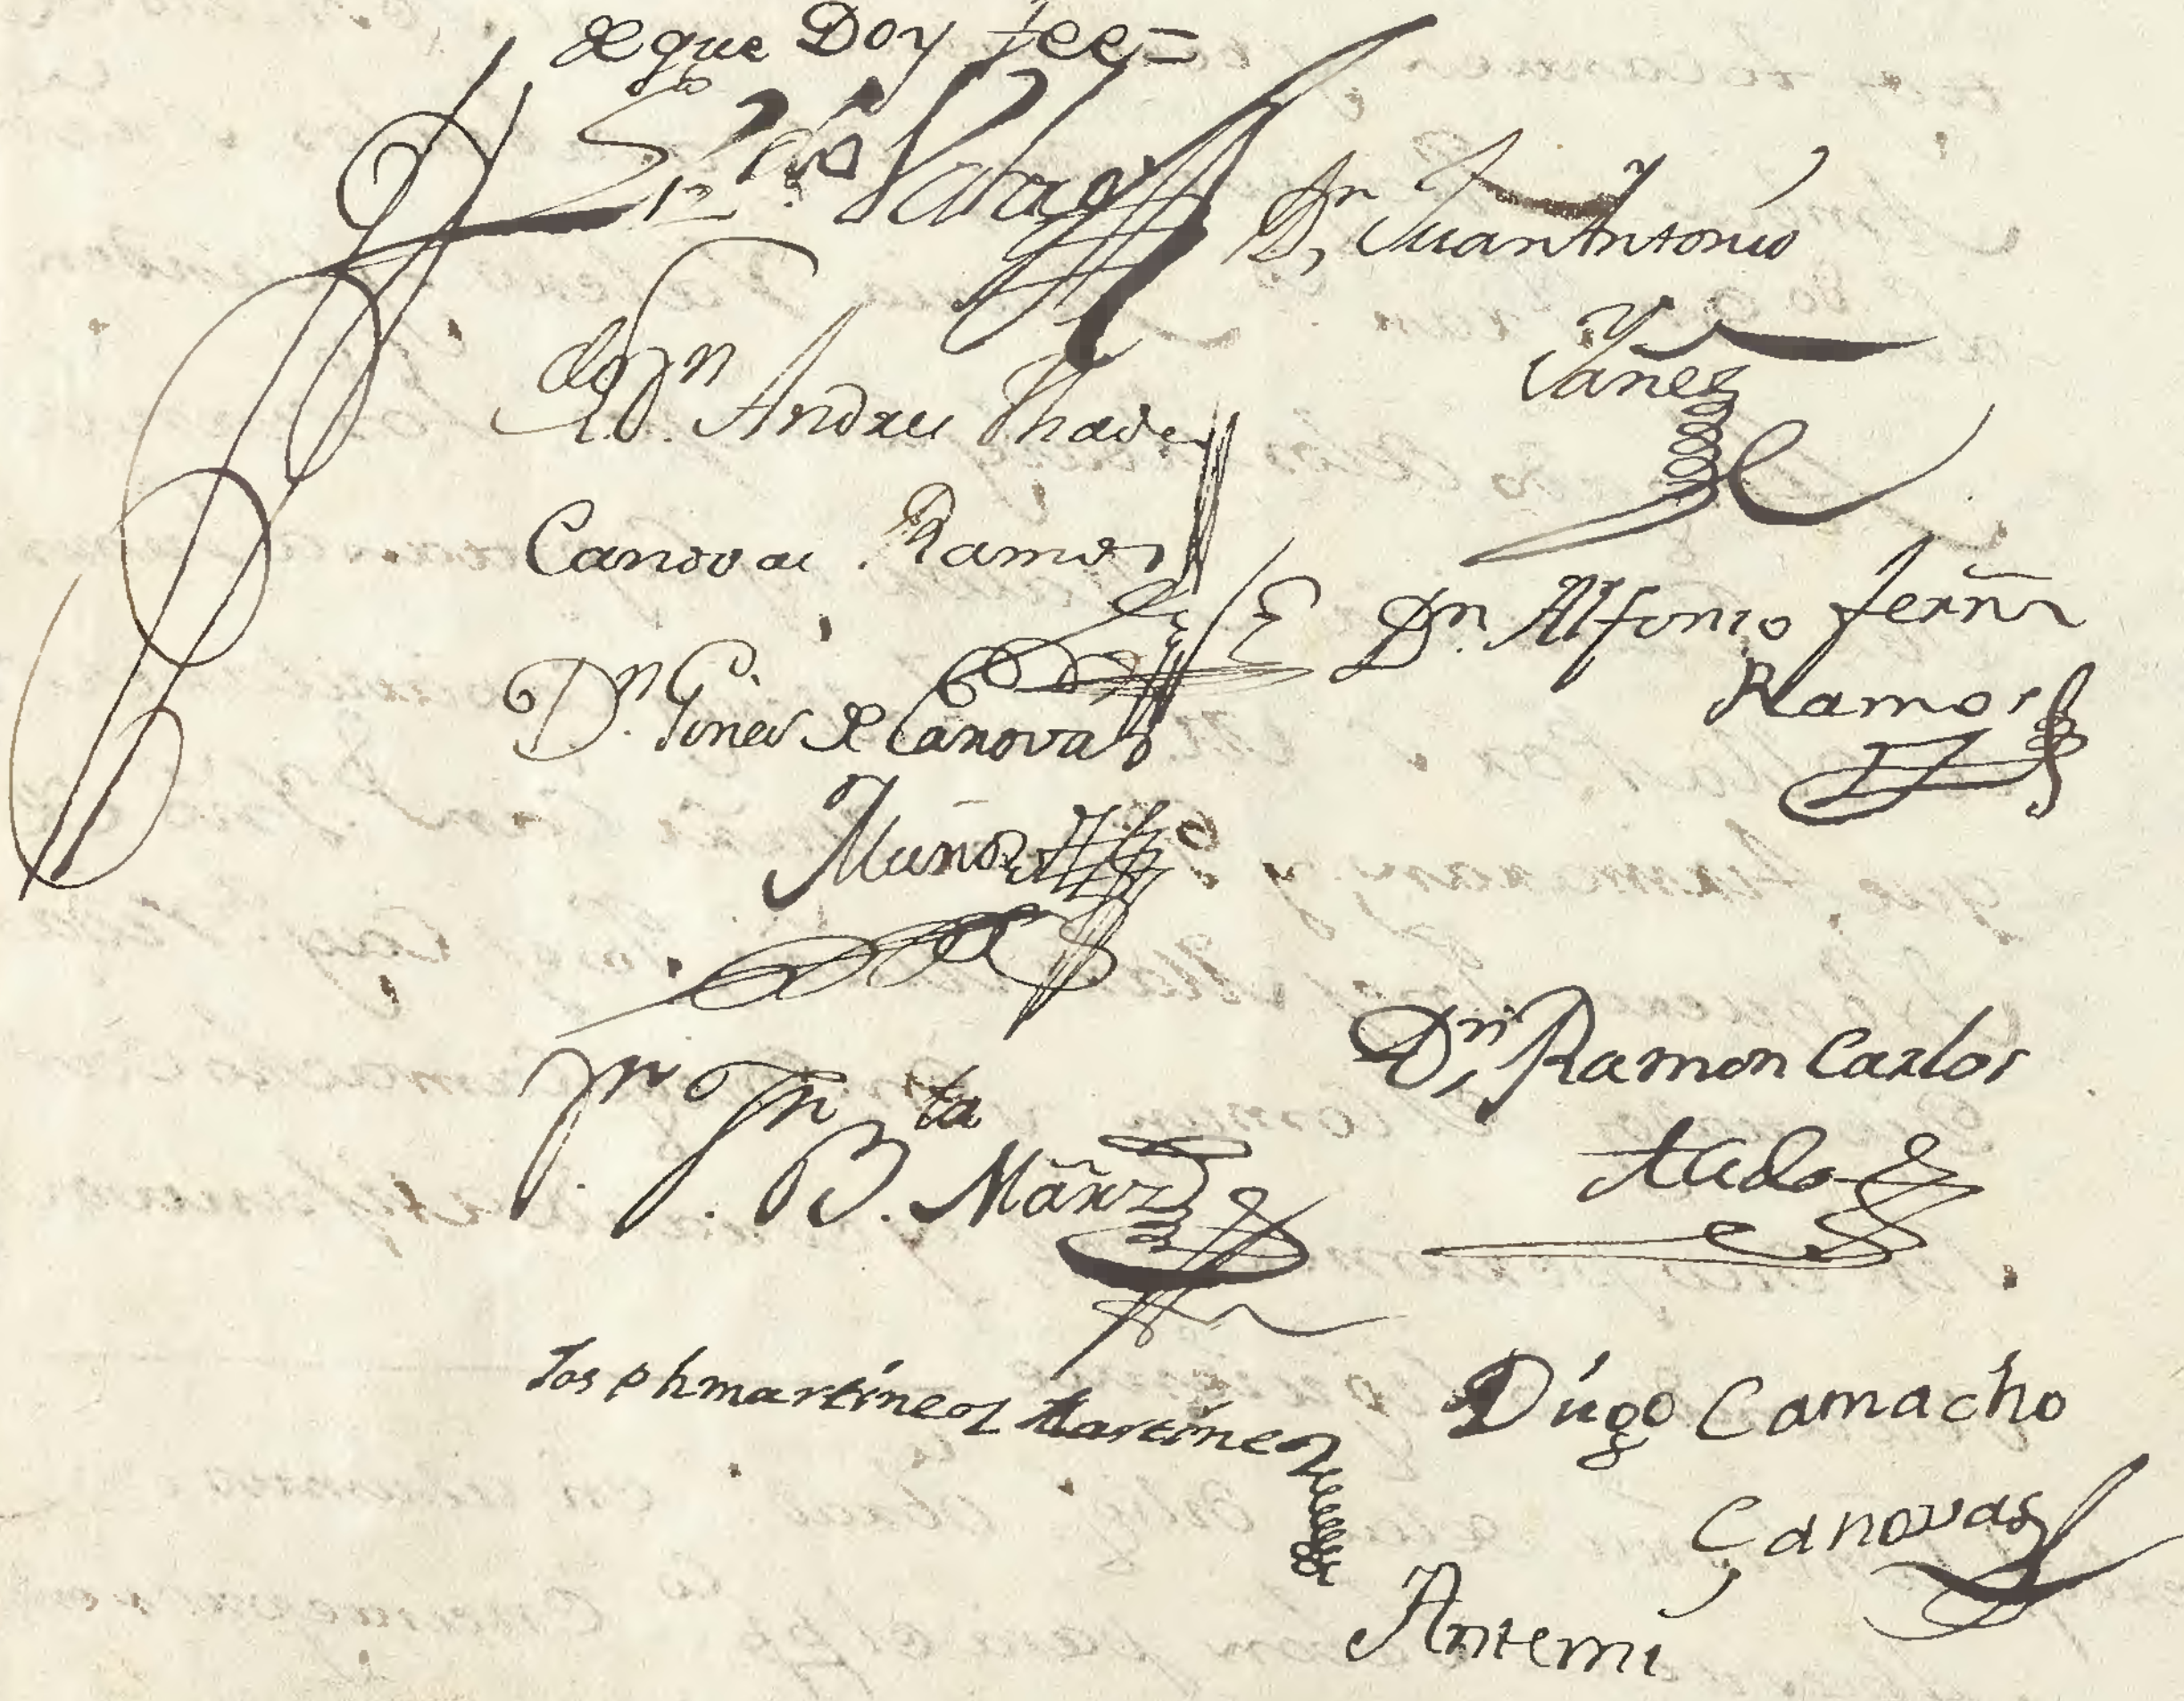 de que Doy fee=
Dn Juan Antonio
Yañez
Dn Andres Thadeo
Canovas Ramos
Dn. Alfonso Ferñz
Ramos
Dn. Gines de Canovas
Muñoz
Dn Ramon Carlos
Aledo
Jn. Bta
Mãrz
Joseph martinez Martinez
Diego Camacho
Canovas
Antemi